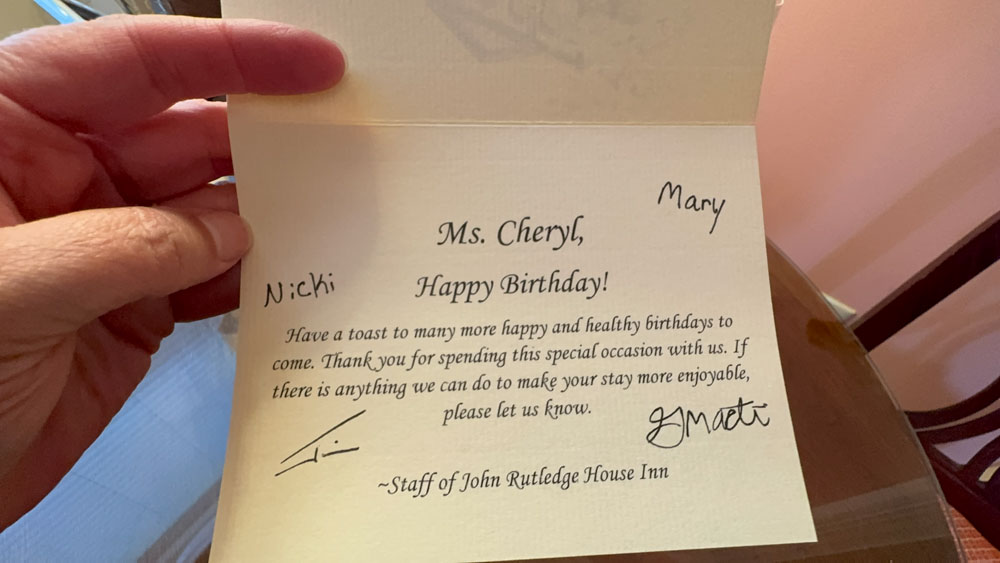 Mary
Ms. Cheryl,
Nicki
Happy Birthday!
Have a toast to many more happy and healthy birthdays to
come. Thank you for spending this special occasion with us. If
there is anything we can do to make your stay more enjoyable,
please let us know.
~Staff of John Rutledge House Inn